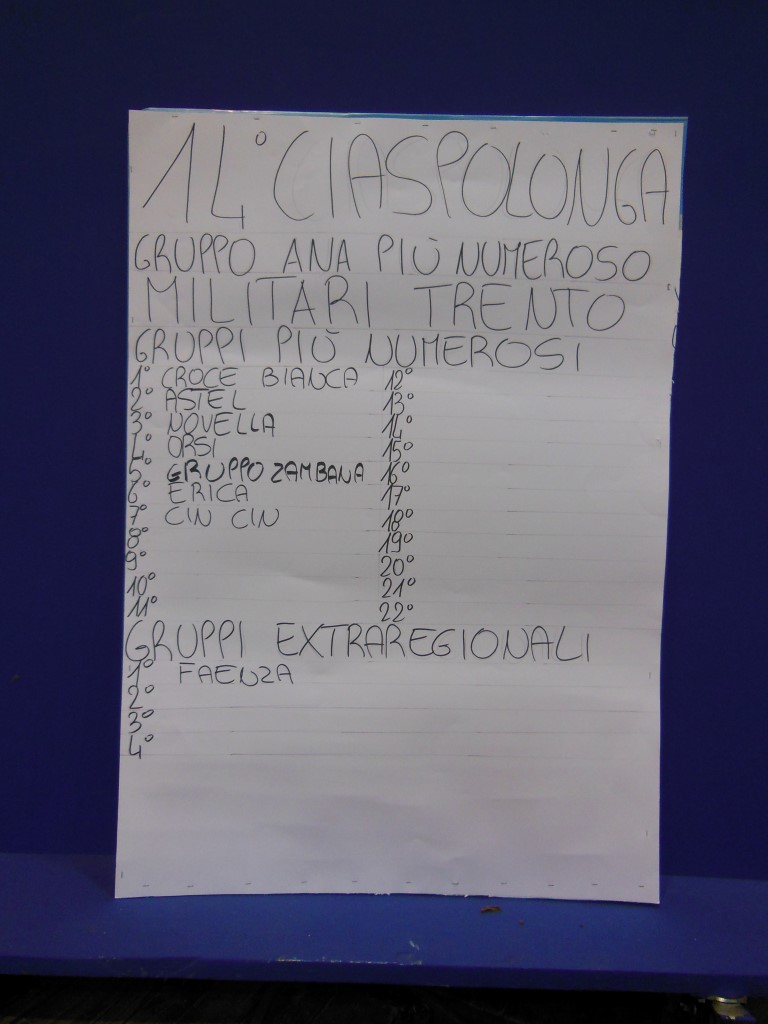 14° CIASPOLONGA
GRUPPO ANA PIÙ NUMEROSO
MILITARI TRENTO
GRUPPI PIÙ NUMEROSI
1° CROCE BIANCA 12°
2° ASTEL 13°
3° NOVELLA 14°
4° ORSI 15°
5° GRUPPO ZAMBANA 16°
6° ERICA 17°
7° CIN CIN 18°
8° 19°
9° 20°
10° 21°
11° 22°
GRUPPI EXTRAREGIONALI
1° FAENZA
2°
3°
4°